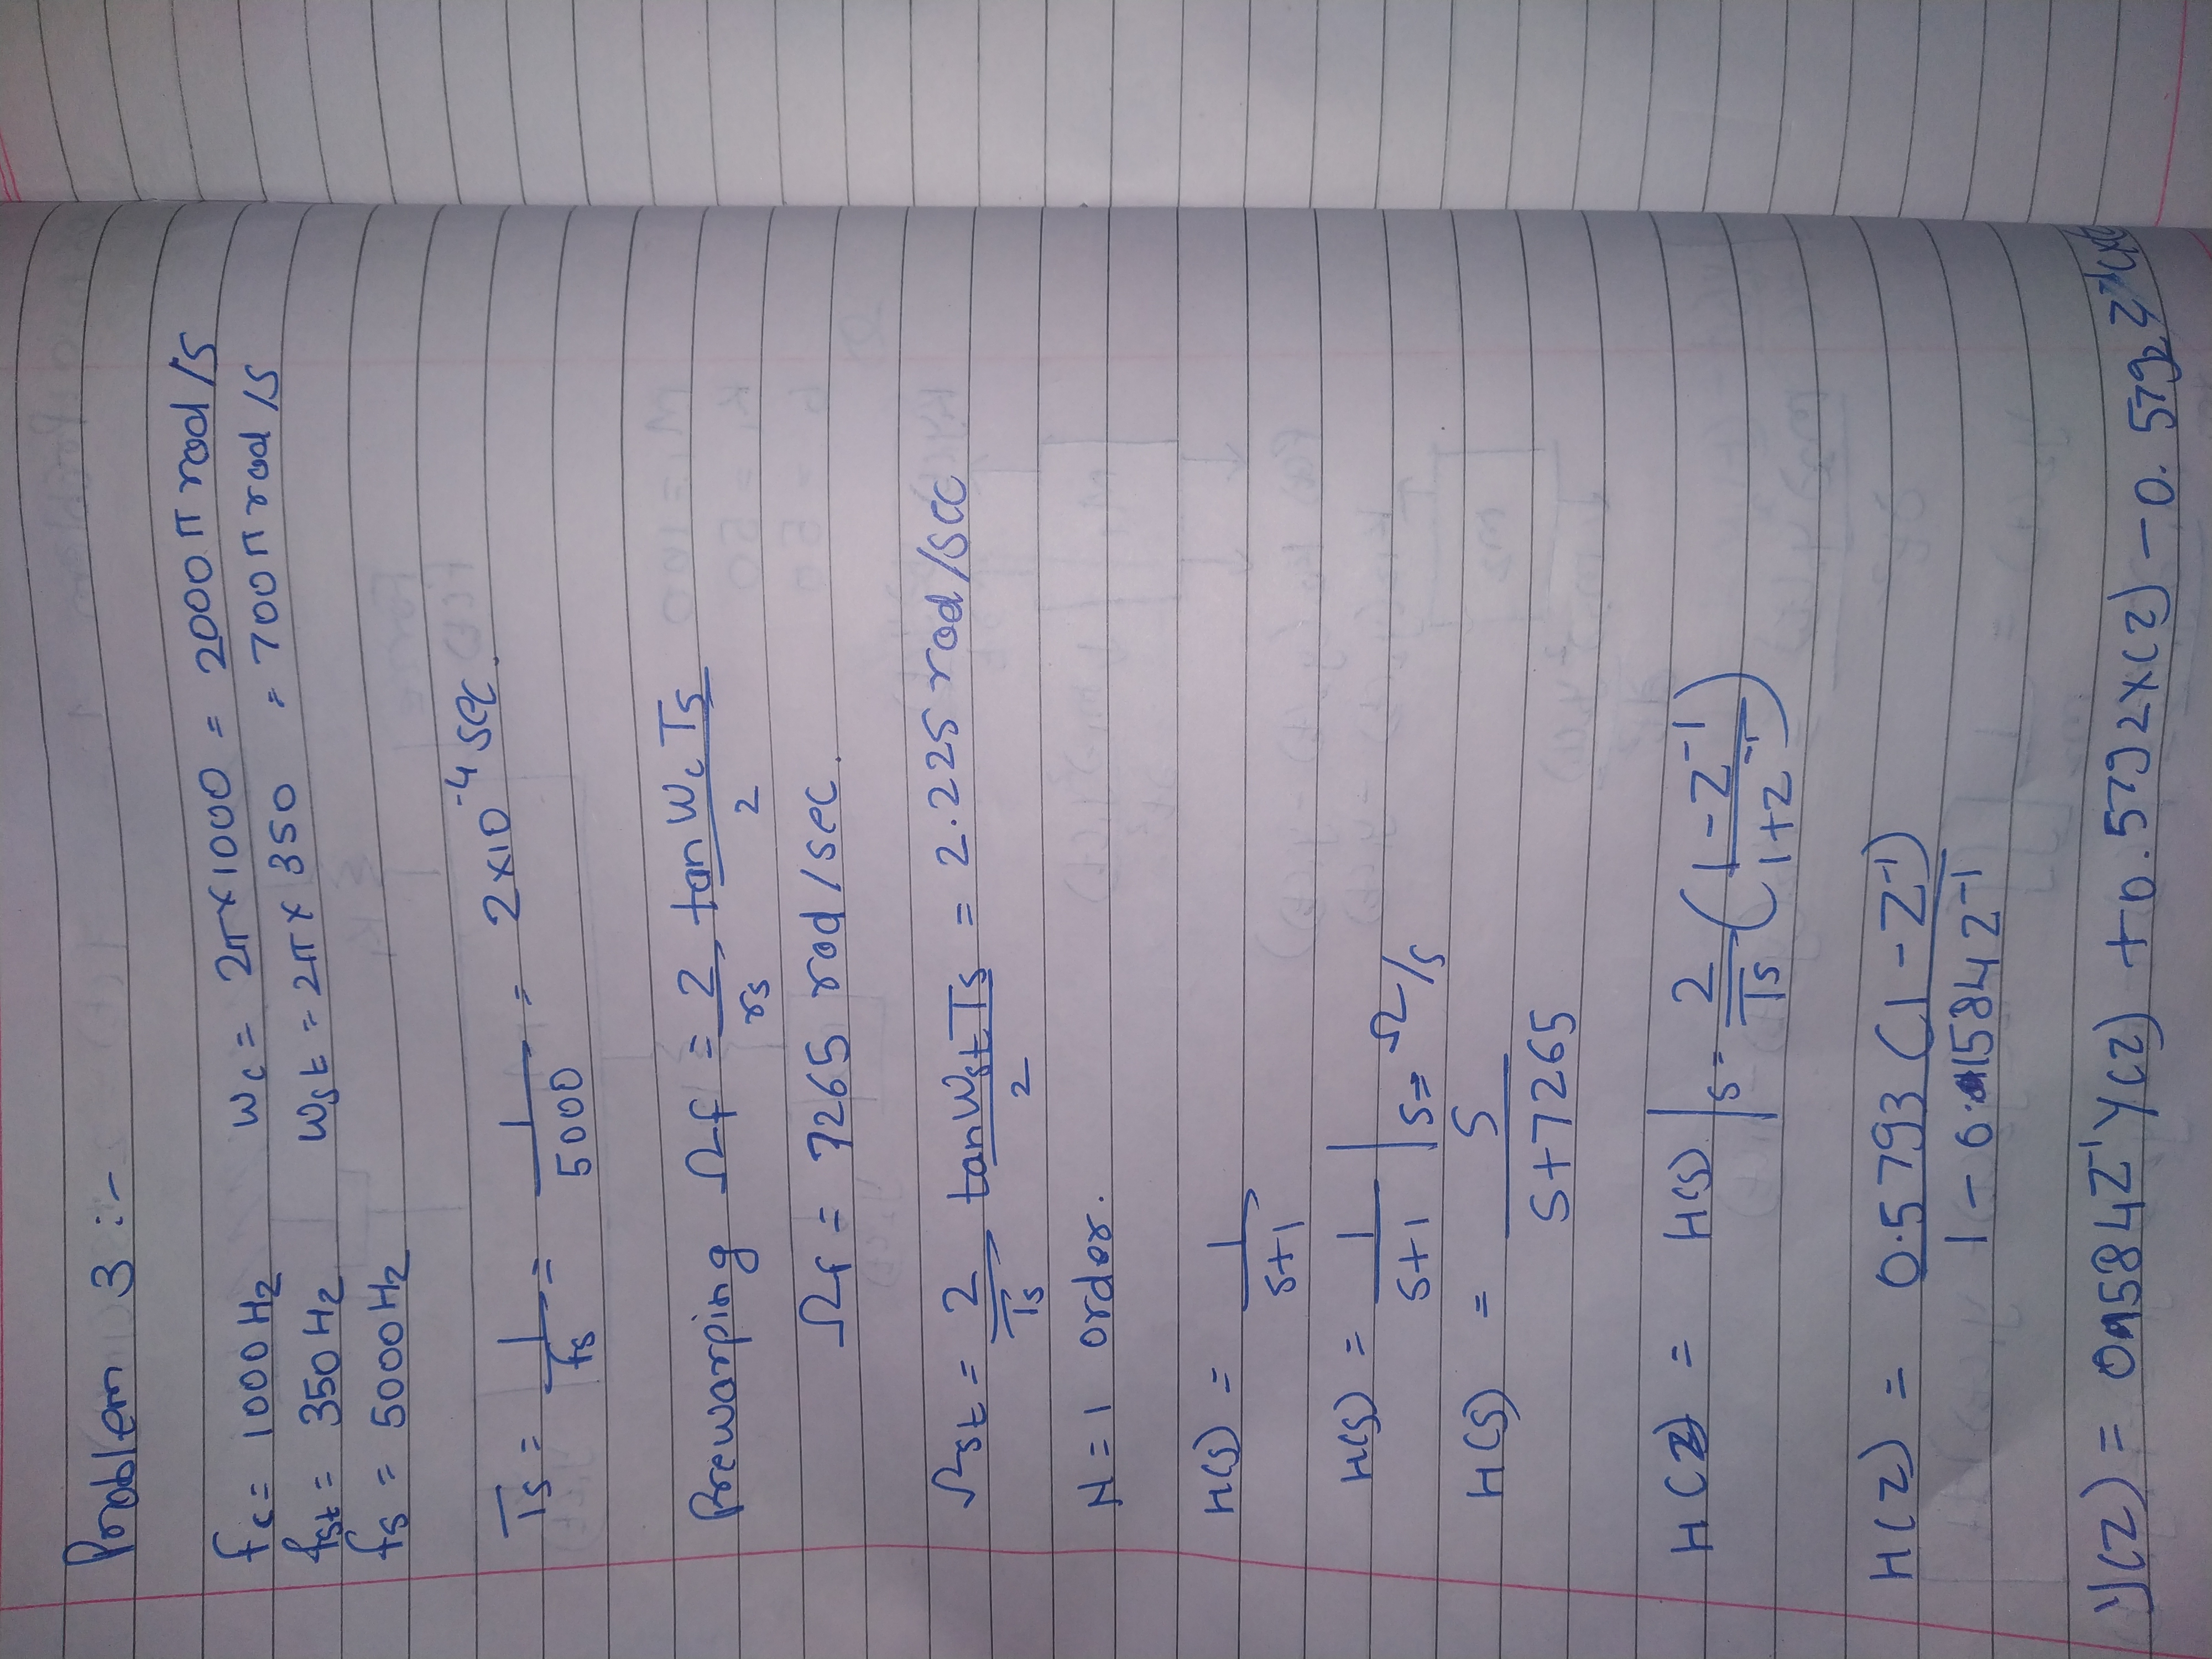 Problem 3 :-
fc = 1000 Hz   Wc = 2π×1000 = 2000 π rad/s
fst = 350 Hz   Wst = 2π × 350 = 700 π rad/s
fs = 5000 Hz
Ts = 1/fs = 1/5000 = 2×10^-4 sec.
Prewarping Ωf = 2/rs tan Wc Ts/2
Ωf = 7265 rad/sec.
Ωst = 2/Ts tan Wst Ts/2 = 2.225 rad/sec
N = 1 order.
H(s) = 1/s+1
H(s) = 1/s+1 | s⇒ Ω/s
H(s) = S/S+7265
H(z) = H(s) | s = 2/Ts (1-Z^-1/1+z^-1)
H(z) = 0.5793 (1-Z^-1)/1-0.1584 z^-1
Y(z) = 0.1584 Z^-1 Y(z) + 0.5792 X(z) - 0.5792 z^-1